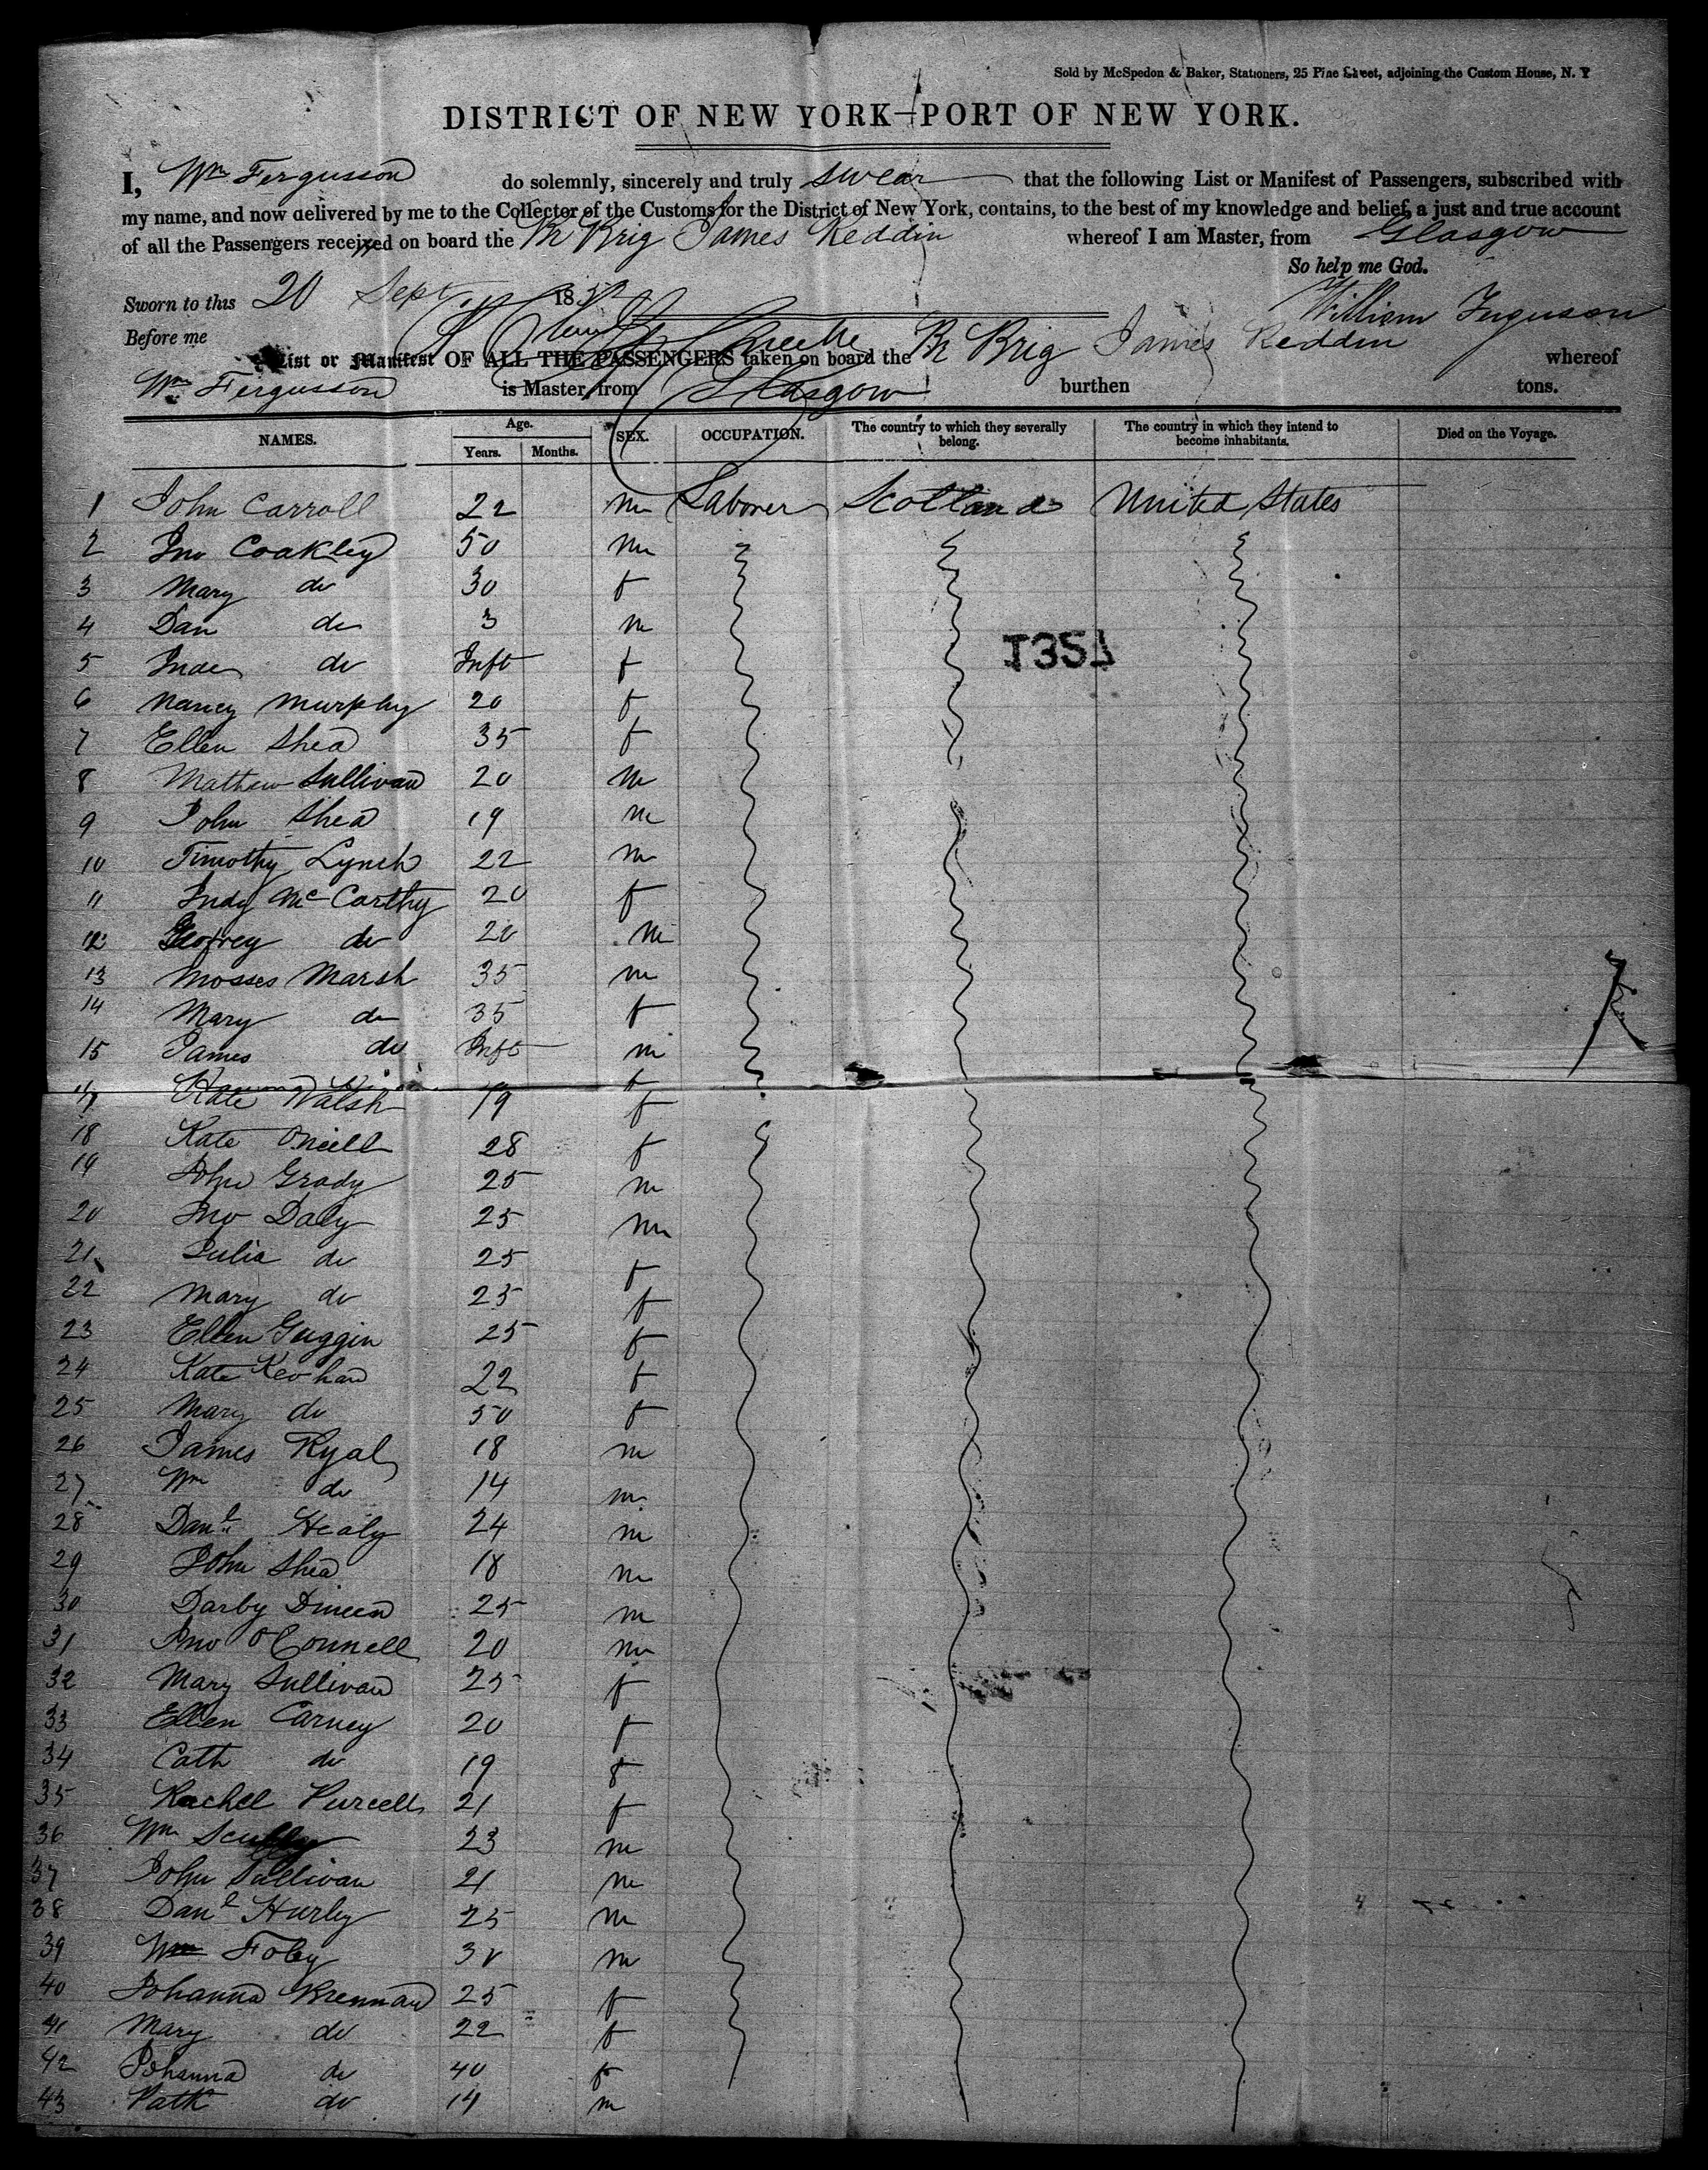 Sold by McSpedon & Baker, Stationers, 25 Pine Street, adjoining the Custom House, N. Y
DISTRICT OF NEW YORK—PORT OF NEW YORK.
I, Wm Fergusson do solemnly, sincerely and truly swear that the following List or Manifest of Passengers, subscribed with
my name, and now delivered by me to the Collector of the Customs for the District of New York, contains, to the best of my knowledge and belief, a just and true account
of all the Passengers received on board the Br Brig James Reddin whereof I am Master, from Glasgow
So help me God.
Sworn to this 20 Sept. 18
William Ferguson
Before me
List or Manifest OF ALL THE PASSENGERS taken on board the Br Brig James Reddin whereof
Wm Fergusson is Master, from Glasgow burthen tons.
NAMES. Age. Years. Months. SEX. OCCUPATION. The country to which they severally belong. The country in which they intend to become inhabitants. Died on the Voyage.
1 John Carroll 22 m Laborer Scotland United States
2 Jno Coakley 50 m
3 Mary do 30 f
4 Dan do 3 m
5 do Inft f
1357
6 Nancy Murphy 20 f
7 Ellen Shea 35 f
8 Mathew Sullivan 20 m
9 John Shea 19 m
10 Timothy Lynch 22 m
11 Judy McCarthy 20 f
12 do 20 m
13 Mosses Marsh 35 m
14 Mary do 35 f
15 James do Inft m
17 Kate Walsh 19 f
18 Kate Oneill 28 f
19 John Grady 25 m
20 Jno Daly 25 m
21 Julia do 25 f
22 Mary do 25 f
23 Ellen Guggin 25 f
24 Kate Keohan 22 f
25 Mary do 50 f
26 James Ryal 18 m
27 Wm do 14 m
28 Danl Healy 24 m
29 John Shea 18 m
30 Darby Dineen 25 m
31 Jno O'Connell 20 m
32 Mary Sullivan 25 f
33 Ellen Carney 20 f
34 Cath do 19 f
35 Rachel Purcell 21 f
36 Wm Scully 23 m
37 John Sullivan 21 m
38 Danl Hurley 25 m
39 Wm Foley 30 m
40 Johanna Brennan 25 f
41 Mary do 22 f
42 Johanna do 40 f
43 Path do 14 m